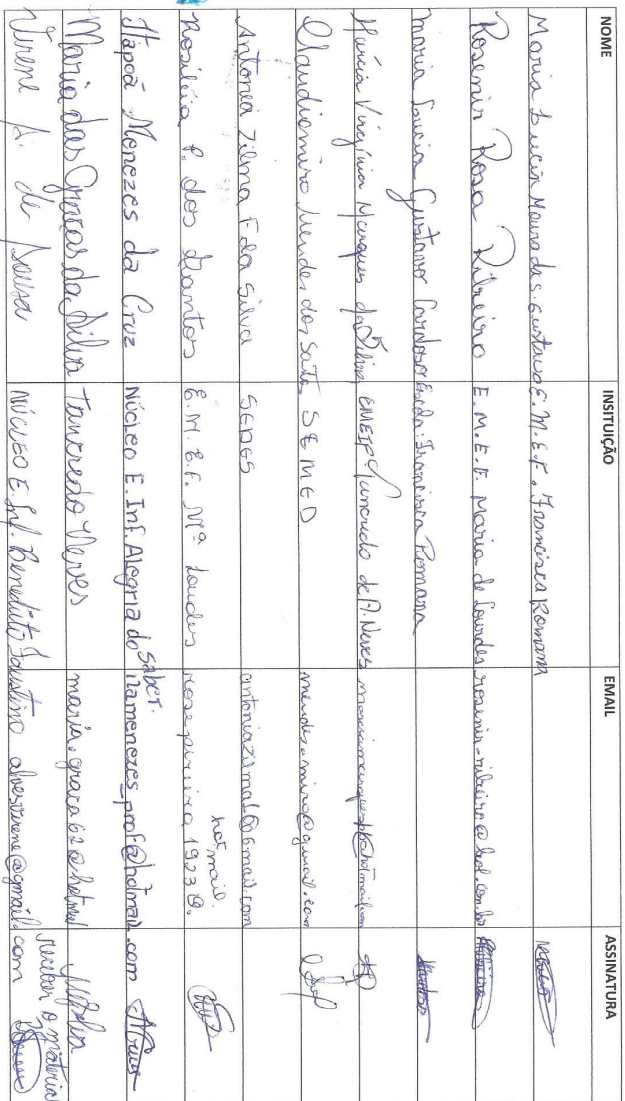 NOME INSITUIÇÃO EMAIL ASSINATURA
Maria Lucia Moura da S. Gustavo E. M. E. F. Francisca Romana
Rosenir Rosa Ribeiro E. M. E. F. Maria de Lourdes rosenir-ribeiro@bol.com.br
Maria Lucia Gustavo Cardoso Escola: Francisca Romana
Márcia Virgínia Marques da Silva EMEIF Tancredo de A. Neves
Claudiomiro Mendes dos Santos SEMED mendes.miro@gmail.com
Antonia Zilma F da Silva SEDES antoniazilma1@Gmail.com
Rosiléia P. dos Santos E. M. E. F. Mª Lourdes rosepireira1923@. hotmail
Itapoã Menezes da Cruz Núcleo E. Inf. Alegria do Saber. itamenezes_prof@hotmail.com
Maria das Graças da Silva Tancredo Neves maria.graca62@hotmail
Virene A. de Sousa Núcleo E. Inf. Benedito Faustino alvesvirene@gmail.com
receber o material